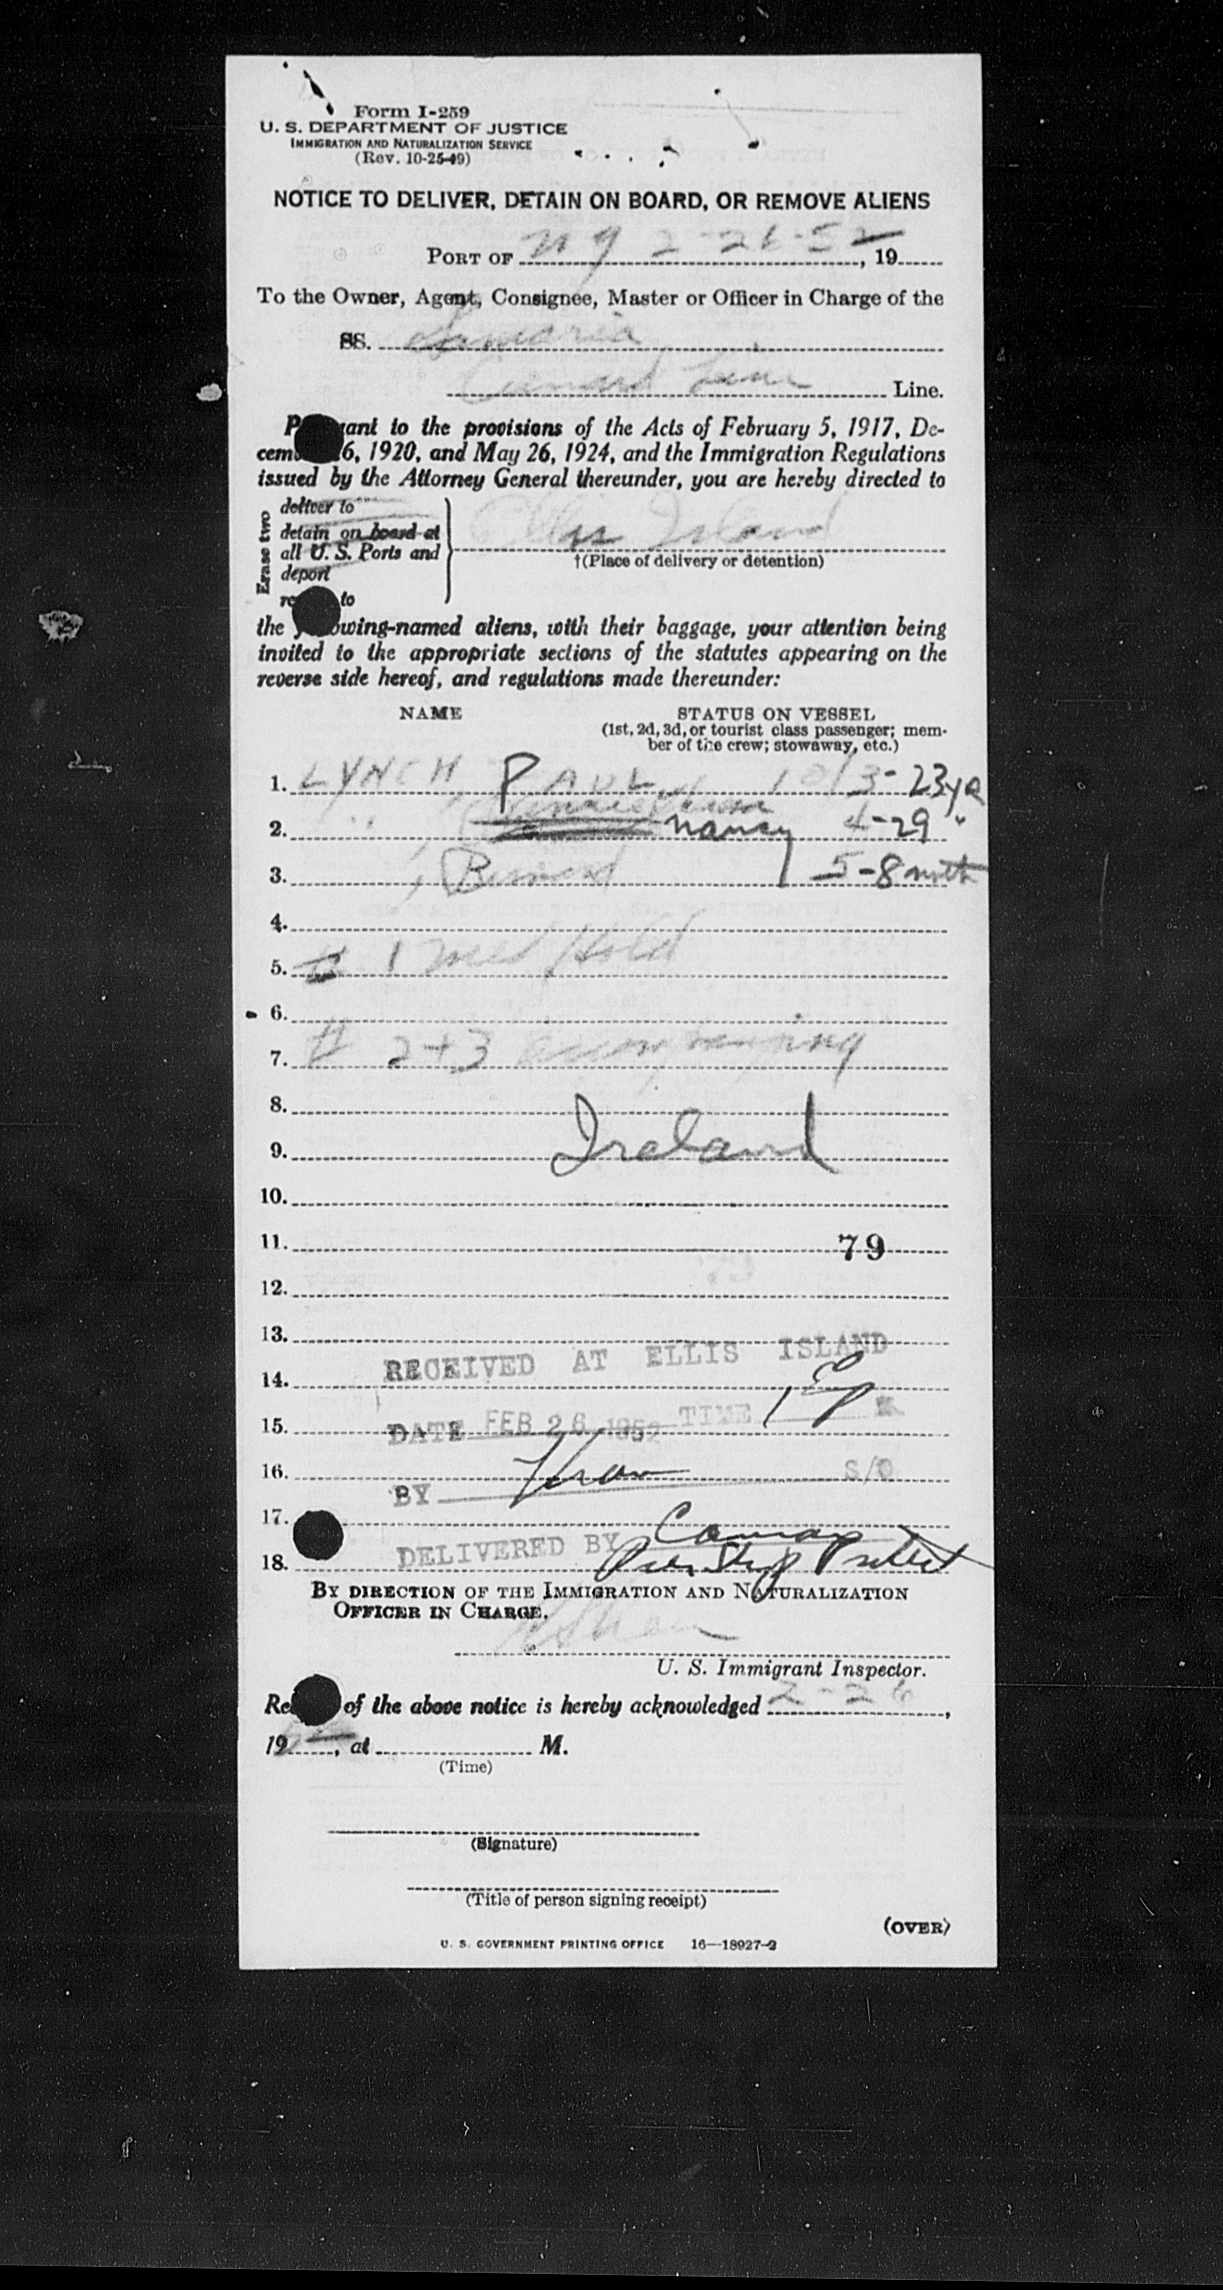 Form I-259
U. S. DEPARTMENT OF JUSTICE
IMMIGRATION AND NATURALIZATION SERVICE
(Rev. 10-25-49)
NOTICE TO DELIVER, DETAIN ON BOARD, OR REMOVE ALIENS
PORT OF NY 2-26-52, 19
To the Owner, Agent, Consignee, Master or Officer in Charge of the
SS. Samaria
Cunard Line Line.
to the provisions of the Acts of February 5, 1917, De-
6, 1920, and May 26, 1924, and the Immigration Regulations
issued by the Attorney General thereunder, you are hereby directed to
Erase two
deliver to
detain on board at
all U. S. Ports and
deport
to
Ellis Island
†(Place of delivery or detention)
the following-named aliens, with their baggage, your attention being
invited to the appropriate sections of the statutes appearing on the
reverse side hereof, and regulations made thereunder:
NAME
STATUS ON VESSEL
(1st, 2d, 3d, or tourist class passenger; mem-
ber of the crew; stowaway, etc.)
1. LYNCH, PAUL 10/3-23
2. " Nancy 4-29 "
3. Bernard 5-8
4.
5. # 1 Med Hold
6.
7. # 2+3 accompanying
8.
9. Ireland
10.
11. 79
12.
13.
RECEIVED AT ELLIS ISLAND
14.
15. DATE FEB 26 1952 TIME
16. S/O
BY
17.
18. DELIVERED BY
BY DIRECTION OF THE IMMIGRATION AND NATURALIZATION
OFFICER IN CHARGE.
U. S. Immigrant Inspector.
of the above notice is hereby acknowledged 2-26,
19 52, at M.
(Time)
(Signature)
(Title of person signing receipt)
(OVER)
U. S. GOVERNMENT PRINTING OFFICE 16—18927-2